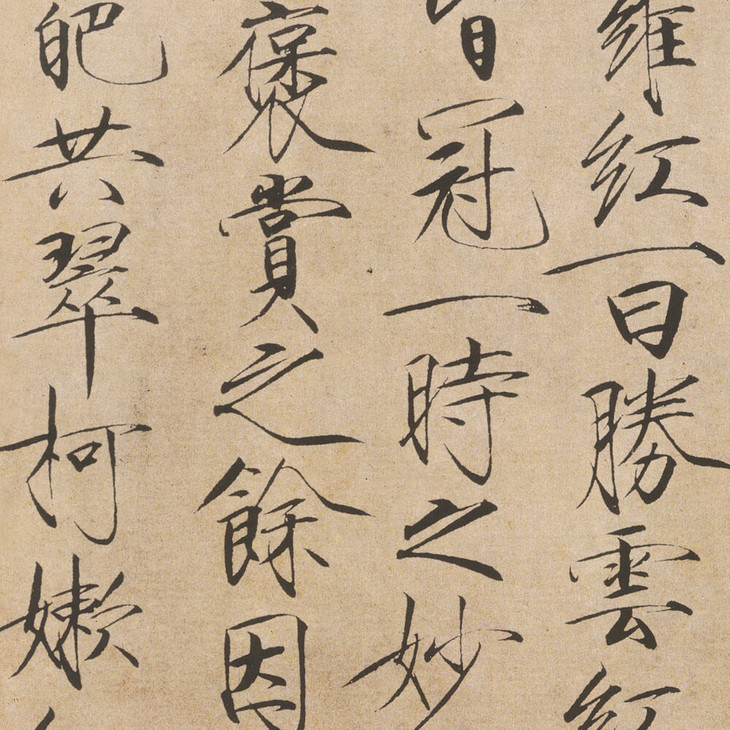 羅紅一曰勝雲紅
皆冠一時之妙
褒賞之餘因
葩共翠柯嫩